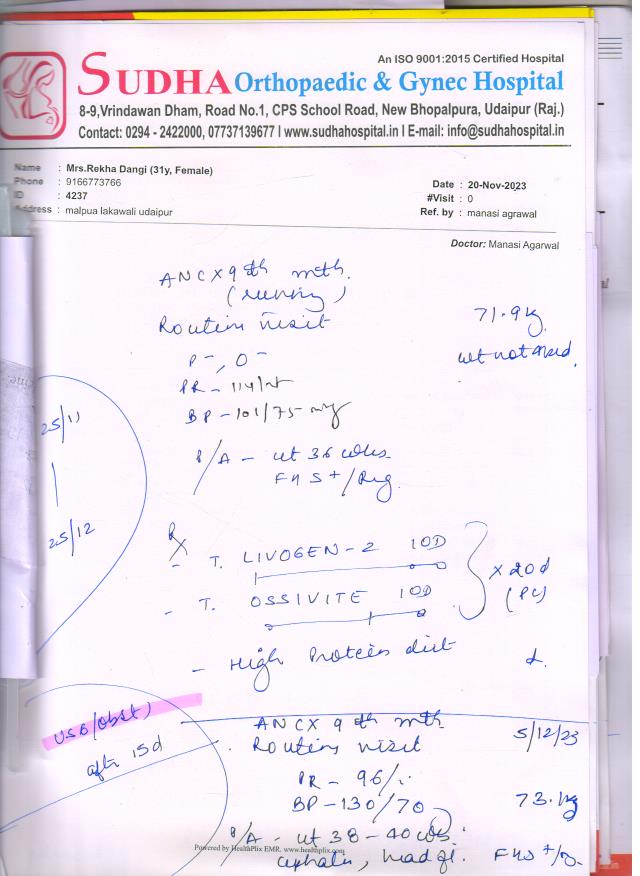 An ISO 9001:2015 Certified Hospital
SUDHA Orthopaedic & Gynec Hospital
8-9,Vrindawan Dham, Road No.1, CPS School Road, New Bhopalpura, Udaipur (Raj.)
Contact: 0294 - 2422000, 07737139677 I www.sudhahospital.in I E-mail: info@sudhahospital.in
Name : Mrs.Rekha Dangi (31y, Female)
Phone : 9166773766
ID : 4237
Address : malpua lakawali udaipur
Date : 20-Nov-2023
#Visit : 0
Ref. by : manasi agrawal
Doctor: Manasi Agarwal
ANC X 9th mth.
(running)
Routine visit
71.9 kg
P-, O-
PR - 114/
BP - 101/75
25/11
25/12
P/A - ut 36 wks
FHS +/Reg
Rx
- T. LIVOGEN-Z 1OD
- T. OSSIVITE 1OD
X 20d
- High Protein diet
USG (obst)
after 15d
ANC X 9th mth
5/12/23
Routine visit
PR - 96/
BP - 130/70
73. kg
P/A - ut 38-40 wks
FHS +
Powered by HealthPlix EMR. www.healthplix.com